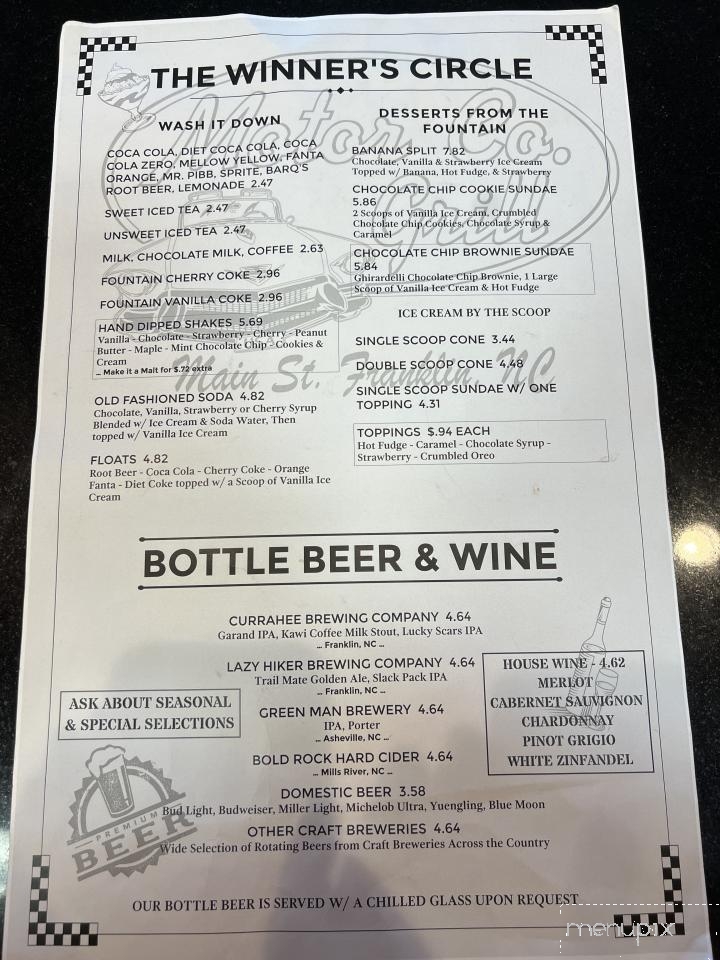 THE WINNER'S CIRCLE
Motor Co.
Grill
Main St. Franklin, NC
WASH IT DOWN
COCA COLA, DIET COCA COLA, COCA
COLA ZERO, MELLOW YELLOW, FANTA
ORANGE, MR. PIBB, SPRITE, BARQ'S
ROOT BEER, LEMONADE 2.47
SWEET ICED TEA 2.47
UNSWEET ICED TEA 2.47
MILK, CHOCOLATE MILK, COFFEE 2.63
FOUNTAIN CHERRY COKE 2.96
FOUNTAIN VANILLA COKE 2.96
HAND DIPPED SHAKES 5.69
Vanilla - Chocolate - Strawberry - Cherry - Peanut
Butter - Maple - Mint Chocolate Chip - Cookies &
Cream
... Make it a Malt for $.72 extra
OLD FASHIONED SODA 4.82
Chocolate, Vanilla, Strawberry or Cherry Syrup
Blended w/ Ice Cream & Soda Water, Then
topped w/ Vanilla Ice Cream
FLOATS 4.82
Root Beer - Coca Cola - Cherry Coke - Orange
Fanta - Diet Coke topped w/ a Scoop of Vanilla Ice
Cream
DESSERTS FROM THE
FOUNTAIN
BANANA SPLIT 7.82
Chocolate, Vanilla & Strawberry Ice Cream
Topped w/ Banana, Hot Fudge, & Strawberry
CHOCOLATE CHIP COOKIE SUNDAE
5.86
2 Scoops of Vanilla Ice Cream, Crumbled
Chocolate Chip Cookies, Chocolate Syrup &
Caramel
CHOCOLATE CHIP BROWNIE SUNDAE
5.84
Ghirardelli Chocolate Chip Brownie, 1 Large
Scoop of Vanilla Ice Cream & Hot Fudge
ICE CREAM BY THE SCOOP
SINGLE SCOOP CONE 3.44
DOUBLE SCOOP CONE 4.48
SINGLE SCOOP SUNDAE W/ ONE
TOPPING 4.31
TOPPINGS $.94 EACH
Hot Fudge - Caramel - Chocolate Syrup -
Strawberry - Crumbled Oreo
BOTTLE BEER & WINE
CURRAHEE BREWING COMPANY 4.64
Garand IPA, Kawi Coffee Milk Stout, Lucky Scars IPA
... Franklin, NC ...
LAZY HIKER BREWING COMPANY 4.64
Trail Mate Golden Ale, Slack Pack IPA
... Franklin, NC ...
GREEN MAN BREWERY 4.64
IPA, Porter
... Asheville, NC ...
BOLD ROCK HARD CIDER 4.64
... Mills River, NC ...
DOMESTIC BEER 3.58
Bud Light, Budweiser, Miller Light, Michelob Ultra, Yuengling, Blue Moon
OTHER CRAFT BREWERIES 4.64
Wide Selection of Rotating Beers from Craft Breweries Across the Country
ASK ABOUT SEASONAL
& SPECIAL SELECTIONS
HOUSE WINE - 4.62
MERLOT
CABERNET SAUVIGNON
CHARDONNAY
PINOT GRIGIO
WHITE ZINFANDEL
PREMIUM
BEER
OUR BOTTLE BEER IS SERVED W/ A CHILLED GLASS UPON REQUEST
menupix